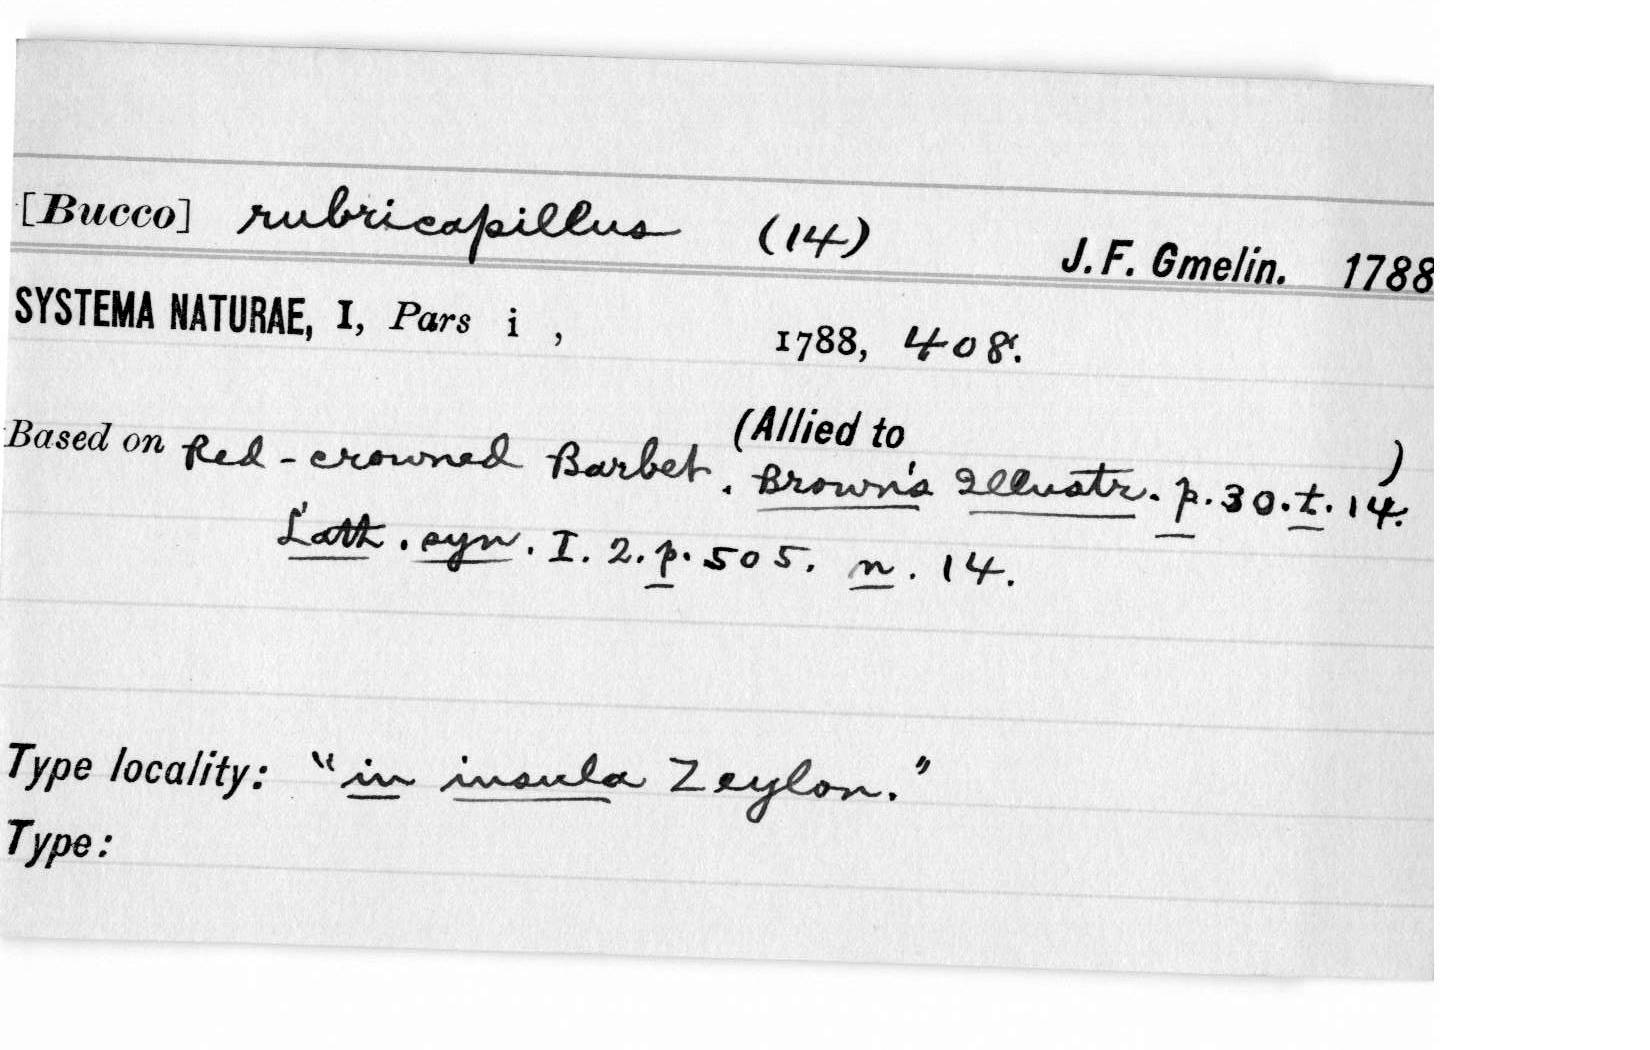 [Bucco] rubricapillus (14) J. F. Gmelin. 1788
SYSTEMA NATURAE, I, Pars i , 1788, 408.
(Allied to )
Based on Red-crowned Barbet. Brown's Illustr. p. 30. t. 14.
Lath. syn. I. 2. p. 505. n. 14.
Type locality: "in insula Zeylon."
Type: